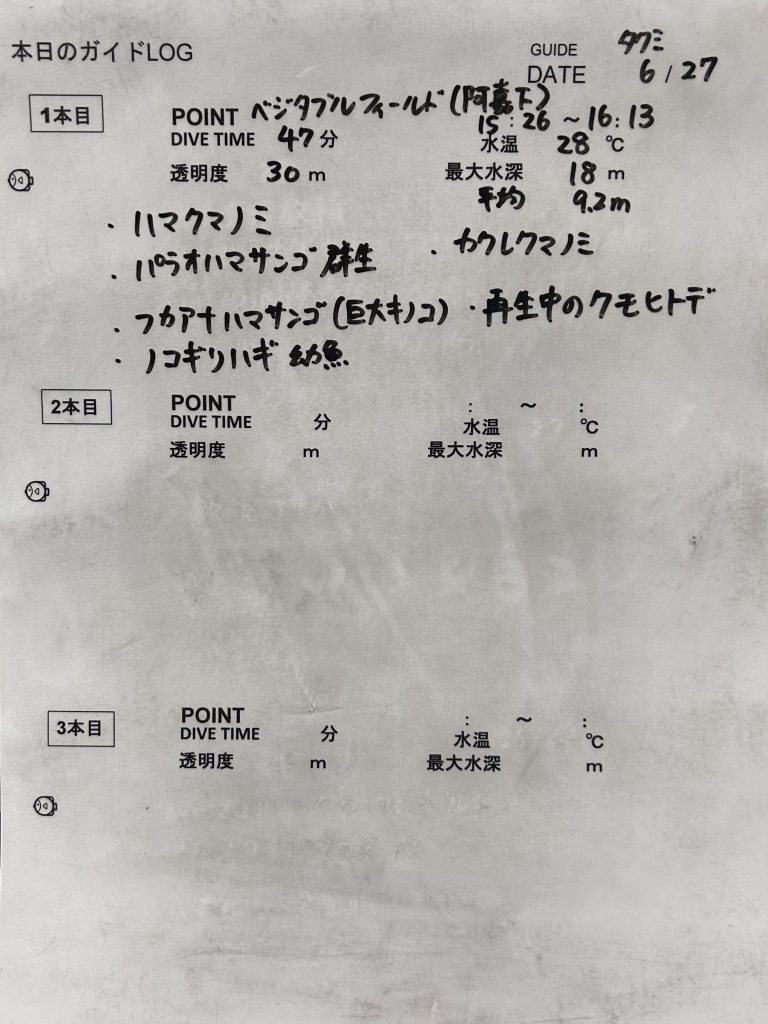 本日のガイドLOG
GUIDE タクミ
DATE 6/27
1本目
POINT ベジタブルフィールド(阿嘉下)
15:26 ~ 16:13
DIVE TIME 47分
水温 28 ℃
透明度 30 m
最大水深 18 m
平均 9.2m
・ハマクマノミ
・パラオハマサンゴ 群生
・カクレクマノミ
・フカアナハマサンゴ(巨大キノコ)
・再生中のクモヒトデ
・ノコギリハギ 幼魚
2本目
POINT
: ~ :
DIVE TIME 分
水温 ℃
透明度 m
最大水深 m
3本目
POINT
: ~ :
DIVE TIME 分
水温 ℃
透明度 m
最大水深 m